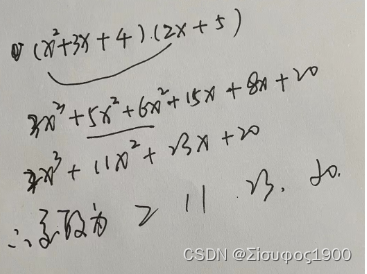 (x²+3x+4).(2x+5)
2x³+5x²+6x²+15x+8x+20
2x³+11x²+23x+20
∴系数为 2 11 23. 20.
CSDN @Σίσυφος1900